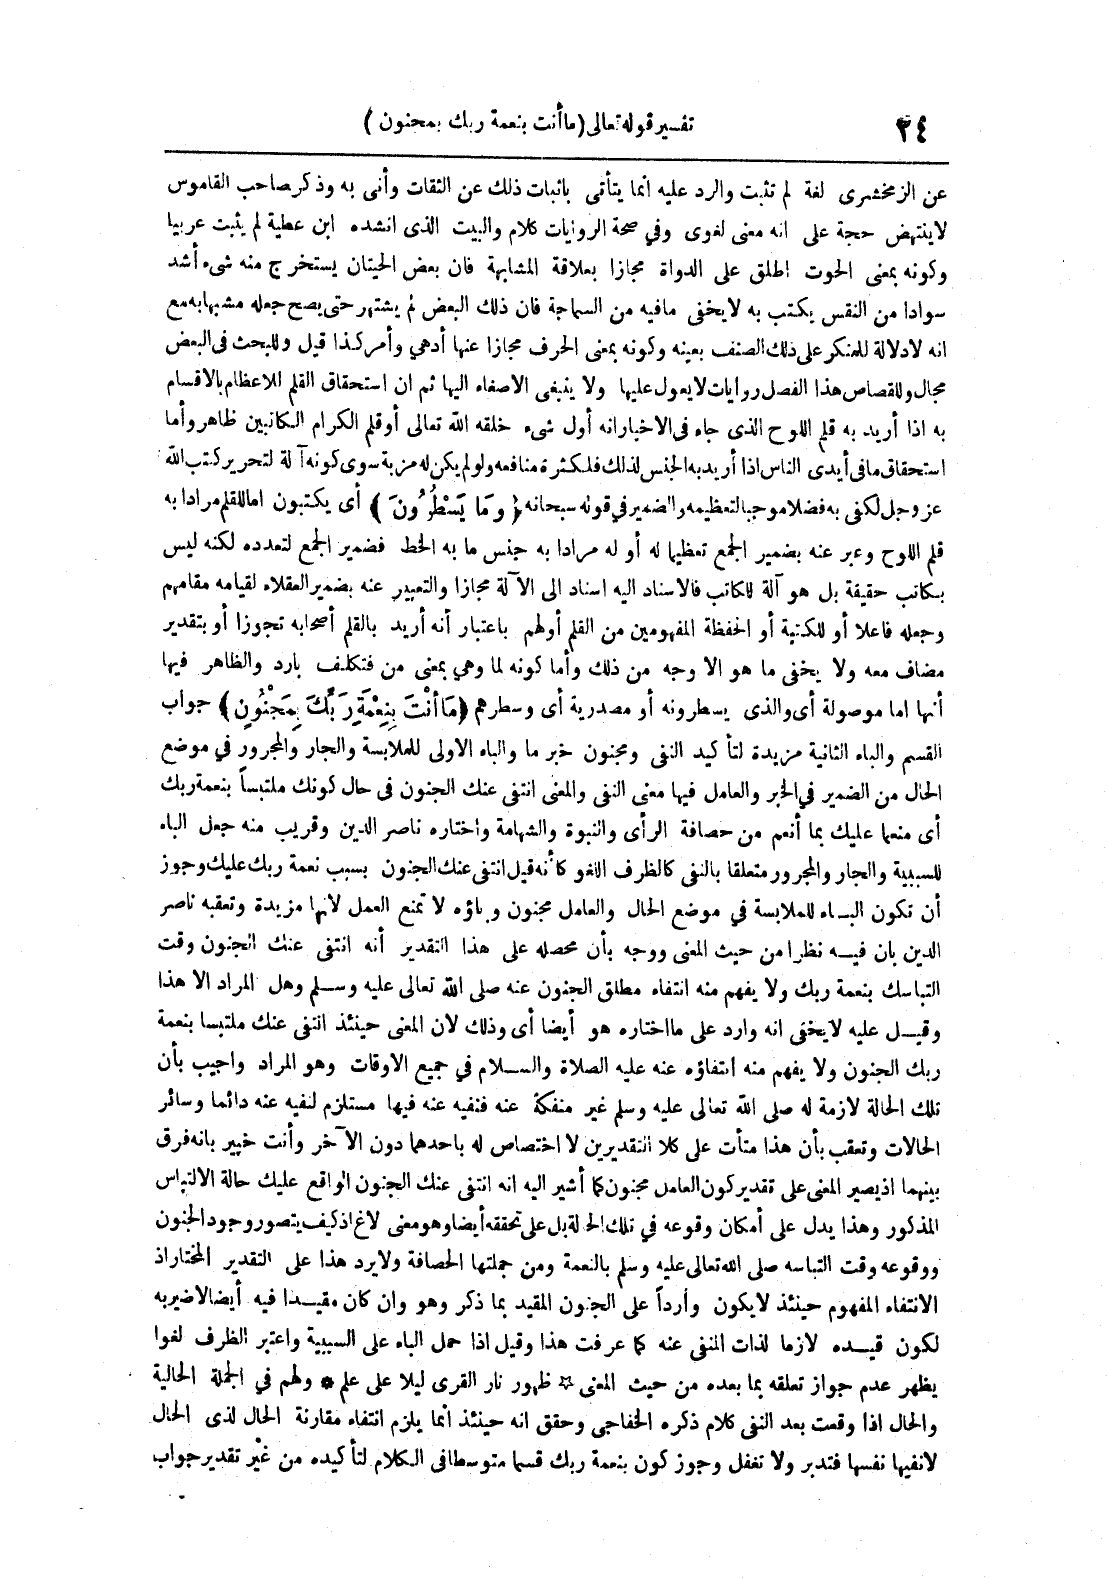 ٢٤ تفسير قوله تعالى (ما أنت بنعمة ربك بمجنون)
عن الزمخشرى لغة لم تثبت والرد عليه انما يتأتى باثبات ذلك عن الثقات وأنى به وذكر صاحب القاموس
لا ينتهض حجة على انه معنى لغوى وفي صحة الروايات كلام والبيت الذى انشده ابن عطية لم يثبت عربيا
وكونه بمعنى الحوت اطلق على الدواة مجازا بعلاقة المشابهة فان بعض الحيتان يستخرج منه شىء أشد
سوادا من النقس يكتب به لا يخفى مافيه من السماجة فان ذلك البعض لم يشتهر حتى يصح جعله مشبها به مع
انه لا دلالة للمنكر على ذلك الصنف بعينه وكونه بمعنى الحرف مجازا عنها أدهي وأمر كذا قيل وللبحث فى البعض
مجال وللقصاص هذا الفصل روايات لا يعول عليها ولا ينبغى الاصغاء اليها ثم ان استحقاق القلم للاعظام بالاقسام
به اذا أريد به قلم اللوح الذى جاء فى الاخبار انه أول شىء خلقه الله تعالى أو قلم الكرام الكاتبين ظاهر وأما
استحقاق ما فى أيدى الناس اذا أريد به الجنس لذلك فلكثرة منافعه ولو لم يكن له مزية سوى كونه آلة لتحرير كتب الله
عز وجل لكفى به فضلا موجبا لتعظيمه والضمير في قوله سبحانه ﴿وَمَا يَسْطُرُونَ﴾ أى يكتبون اما للقلم مرادا به
قلم اللوح وعبر عنه بضمير الجمع تعظيما له أو له مرادا به جنس ما به الخط فضمير الجمع لتعدده لكنه ليس
بكاتب حقيقة بل هو آلة للكاتب فالاسناد اليه اسناد الى الآلة مجازا والتعبير عنه بضمير العقلاء لقيامه مقامهم
وجعله فاعلا أو للكتبة أو الحفظة المفهومين من القلم أولهم باعتبار أنه أريد بالقلم أصحابه تجوزا أو بتقدير
مضاف معه ولا يخفى ما هو الاوجه من ذلك وأما كونه لما وهي بمعنى من فتكلف بارد والظاهر فيها
أنها اما موصولة أى والذى يسطرونه أو مصدرية أى وسطرهم ﴿مَا أَنْتَ بِنِعْمَةِ رَبِّكَ بِمَجْنُونٍ﴾ جواب
القسم والباء الثانية مزيدة لتأكيد النفى ومجنون خبر ما والباء الاولى للملابسة والجار والمجرور في موضع
الحال من الضمير في الخبر والعامل فيها معنى النفى والمعنى انتفى عنك الجنون فى حال كونك ملتبساً بنعمة ربك
أى منعما عليك بما أنعم من حصافة الرأى والنبوة والشهامة واختاره ناصر الدين وقريب منه جعل الباء
للسببية والجار والمجرور متعلقا بالنفى كالظرف اللغو كأنه قيل انتفى عنك الجنون بسبب نعمة ربك عليك وجوز
أن تكون الباء للملابسة في موضع الحال والعامل مجنون وباؤه لا تمنع العمل لانها مزيدة وتعقبه ناصر
الدين بان فيه نظرا من حيث المعنى ووجه بأن محصله على هذا التقدير أنه انتفى عنك الجنون وقت
التباسك بنعمة ربك ولا يفهم منه انتفاء مطلق الجنون عنه صلى الله تعالى عليه وسلم وهل المراد الا هذا
وقيل عليه لا يخفى انه وارد على ما اختاره هو أيضا أى وذلك لان المعنى حينئذ انتفى عنك ملتبسا بنعمة
ربك الجنون ولا يفهم منه انتفاؤه عنه عليه الصلاة والسلام في جميع الاوقات وهو المراد واجيب بأن
تلك الحالة لازمة له صلى الله تعالى عليه وسلم غير منفكة عنه فنفيه عنه فيها مستلزم لنفيه عنه دائما وسائر
الحالات وتعقب بأن هذا متأت على كلا التقديرين لا اختصاص له باحدهما دون الآخر وأنت خبير بانه فرق
بينهما اذ يصير المعنى على تقدير كون العامل مجنون كما أشير اليه انه انتفى عنك الجنون الواقع عليك حالة الالتباس
المذكور وهذا يدل على أمكان وقوعه في تلك الحالة بل على تحققه أيضا وهو معنى لاغ اذ كيف يتصور وجود الجنون
ووقوعه وقت التباسه صلى الله تعالى عليه وسلم بالنعمة ومن جملتها الحصافة ولا يرد هذا على التقدير المختار اذ
الانتفاء المفهوم حينئذ لا يكون وأرداً على الجنون المقيد بما ذكر وهو وان كان مقيدا فيه أيضا لاضير به
لكون قيده لازما لذات المنفى عنه كما عرفت هذا وقيل اذا حمل الباء على السببية واعتبر الظرف لغوا
يظهر عدم جواز تعلقه بما بعده من حيث المعنى * ظهور نار القرى ليلا على علم * ولهم في الجملة الحالية
والحال اذا وقعت بعد النفى كلام ذكره الخفاجي وحقق انه حينئذ انما يلزم انتفاء مقارنة الحال لذى الحال
لانفيها نفسها فتدبر ولا تغفل وجوز كون بنعمة ربك قسما متوسطا فى الكلام لتأكيده من غير تقدير جواب